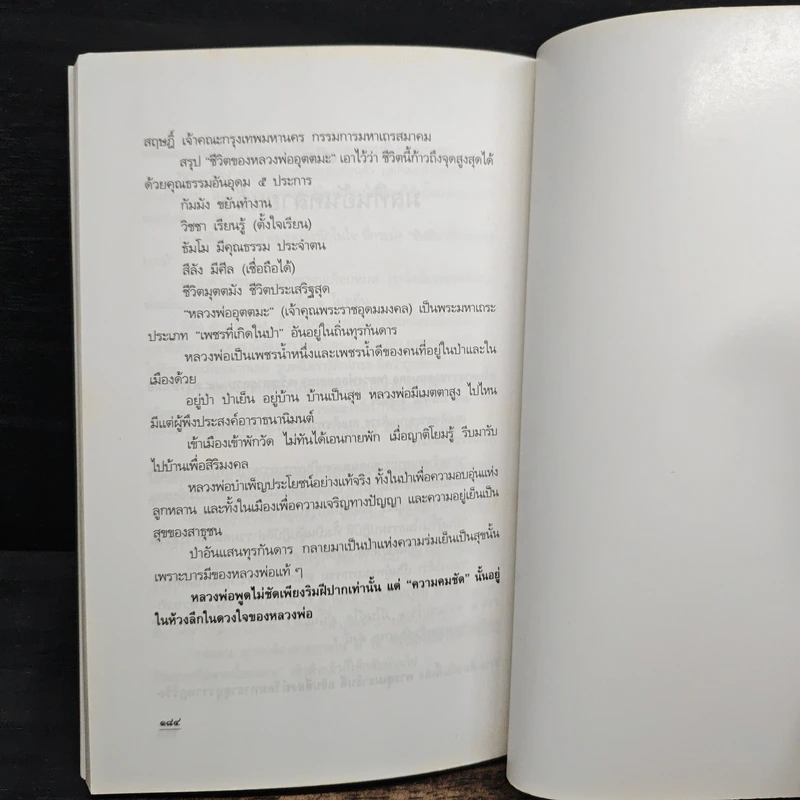 สฤษฎิ์ เจ้าคณะกรุงเทพมหานคร กรรมการมหาเถรสมาคม
สรุป "ชีวิตของหลวงพ่ออุตตมะ" เอาไว้ว่า ชีวิตนี้ก้าวถึงจุดสูงสุดได้
ด้วยคุณธรรมอันอุดม ๕ ประการ
กัมมัง ขยันทำงาน
วิชชา เรียนรู้ (ตั้งใจเรียน)
ธัมโม มีคุณธรรม ประจำตน
สีลัง มีศีล (เชื่อถือได้)
ชีวิตมุตตมัง ชีวิตประเสริฐสุด
"หลวงพ่ออุตตมะ" (เจ้าคุณพระราชอุดมมงคล) เป็นพระมหาเถระ
ประเภท "เพชรที่เกิดในป่า" อันอยู่ในถิ่นทุรกันดาร
หลวงพ่อเป็นเพชรน้ำหนึ่งและเพชรน้ำดีของคนที่อยู่ในป่าและใน
เมืองด้วย
อยู่ป่า ป่าเย็น อยู่บ้าน บ้านเป็นสุข หลวงพ่อมีเมตตาสูง ไปไหน
มีแต่ผู้พึงประสงค์อาราธนานิมนต์
เข้าเมืองเข้าพักวัด ไม่ทันได้เอนกายพัก เมื่อญาติโยมรู้ รีบมารับ
ไปบ้านเพื่อสิริมงคล
หลวงพ่อบำเพ็ญประโยชน์อย่างแท้จริง ทั้งในป่าเพื่อความอบอุ่นแห่ง
ลูกหลาน และทั้งในเมืองเพื่อความเจริญทางปัญญา และความอยู่เย็นเป็น
สุขของสาธุชน
ป่าอันแสนทุรกันดาร กลายมาเป็นป่าแห่งความร่มเย็นเป็นสุขนั้น
เพราะบารมีของหลวงพ่อแท้ ๆ
หลวงพ่อพูดไม่ชัดเพียงริมฝีปากเท่านั้น แต่ "ความคมชัด" นั้นอยู่
ในห้วงลึกในดวงใจของหลวงพ่อ
๑๘๔